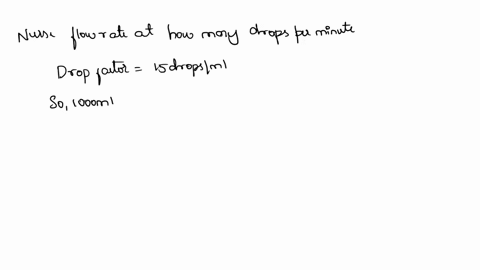 Nurse flow rate at how many drops per minute
Drop factor = 15 drops/ml
So, 1000ml